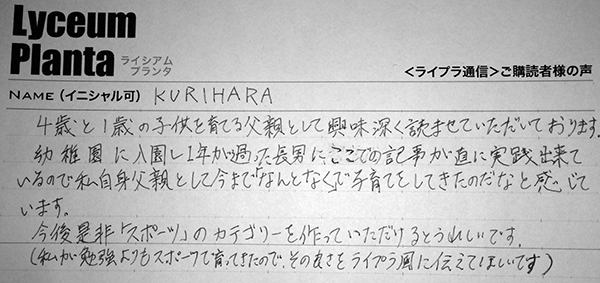 Lyceum
Planta ライシアム
プランタ
<ライプラ通信>ご購読者様の声
NAME (イニシャル可) KURIHARA
4歳と1歳の子供を育てる父親として興味深く読ませていただいております。
幼稚園に入園し1年が過った長男に、ここでの記事が直に実践出来て
いるので私自身父親として今まで「なんとなく」で子育てをしてきたのだなと感じて
います。
今後是非「スポーツ」のカテゴリーを作っていただけるとうれしいです。
(私が勉強よりもスポーツで育ってきたので、その良さをライプラ風に伝えてほしいです)